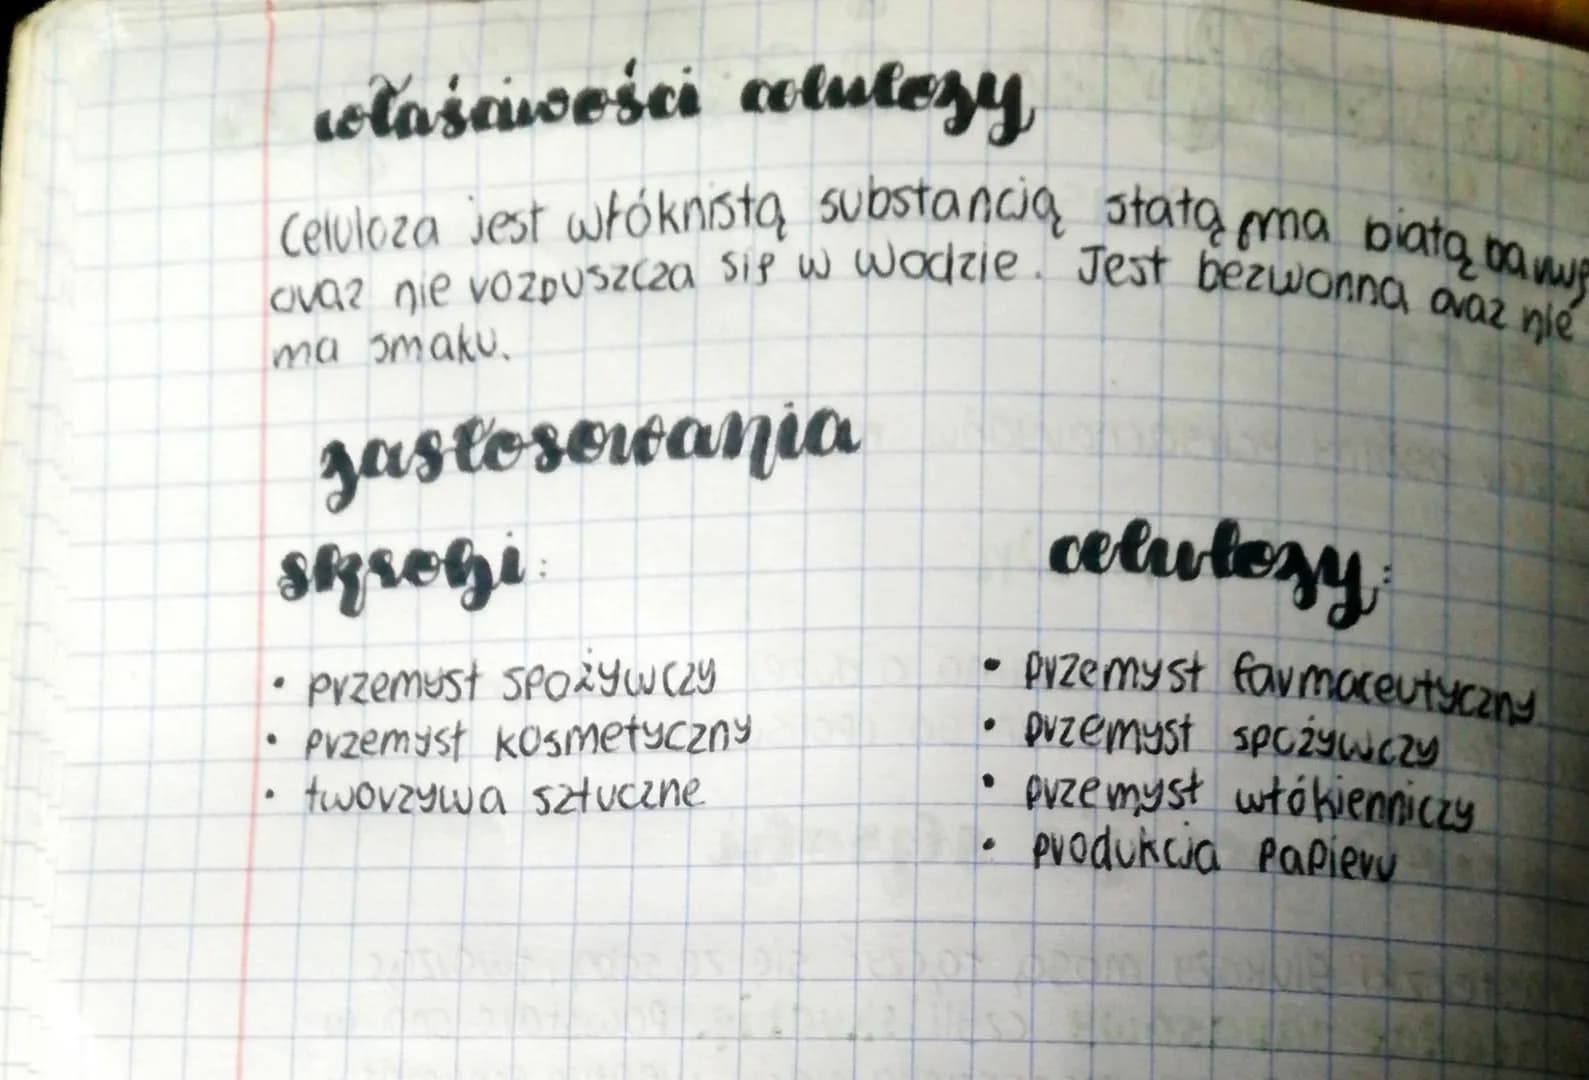 właściwości celulozy
Celuloza jest włóknistą substancją stałą ma białą barwę
oraz nie rozpuszcza się w wodzie. Jest bezwonna oraz nie
ma smaku.
zastosowania
skrobi:
celulozy:
• przemysł spożywczy
• przemysł kosmetyczny
• tworzywa sztuczne
• przemysł farmaceutyczny
• przemysł spożywczy
• przemysł włókienniczy
• produkcja papieru